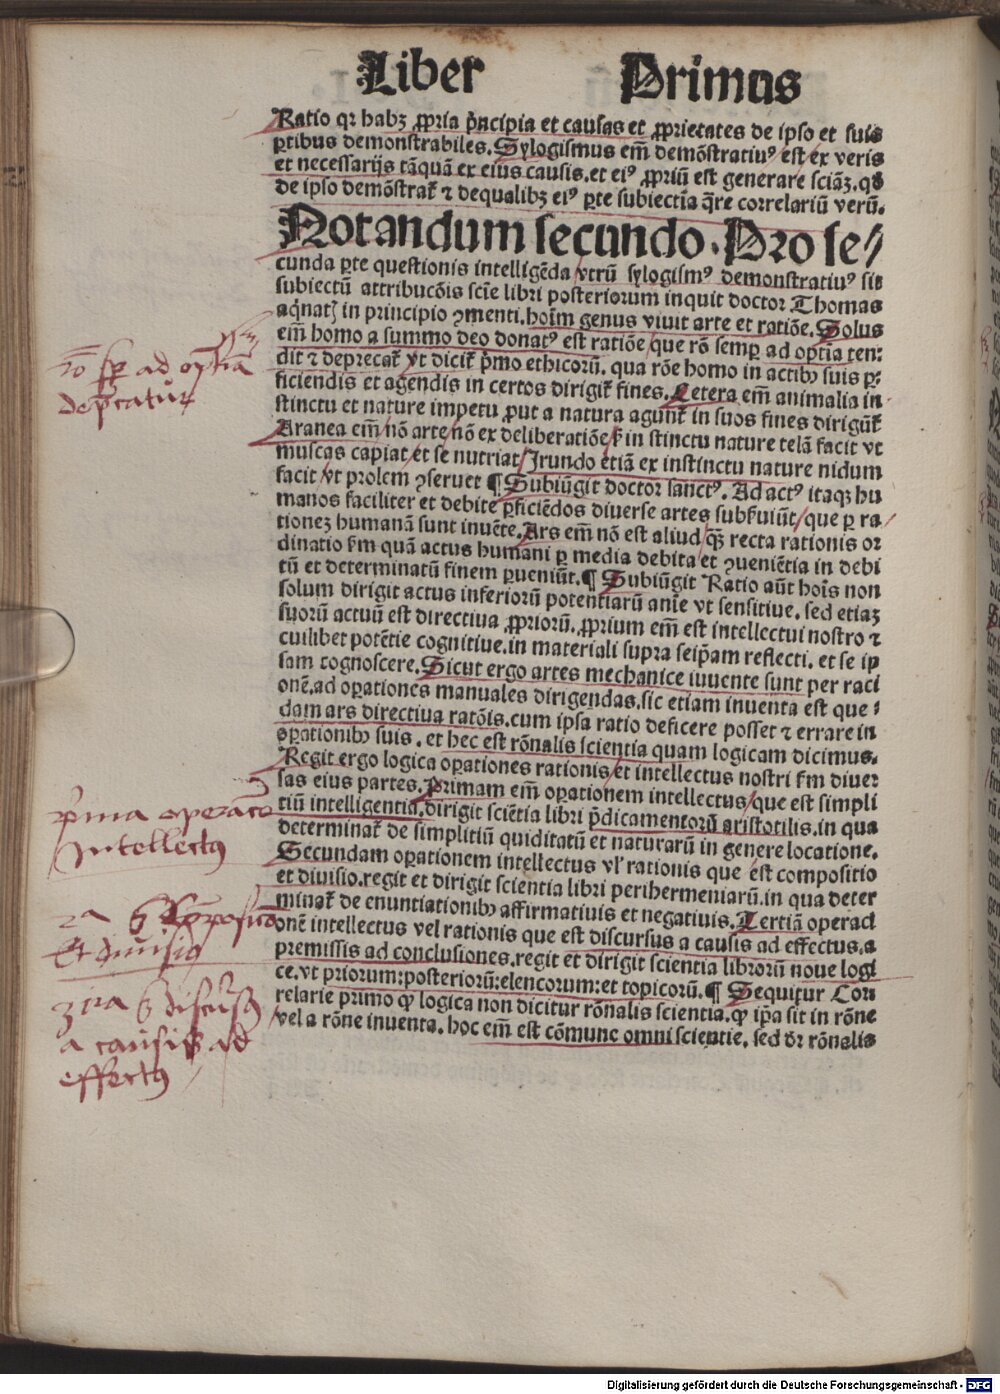 Liber Primus
Ratio qꝛ habꝫ ꝓpria p̃ncipia et causas et ꝓprietates de ipso et suis
ꝑtibus demonstrabiles. Sylogismus em̃ demõstratiuꝰ est ex veris
et necessarijs tãquã ex eius causis. et eiꝰ ꝓpriũ est generare sciãꝫ. qď
de ipso demõstrat᷑ ⁊ de qualibꝫ eiꝰ ꝑte subiectia q̃re correlariũ verũ.
Notandum secundo. Pro se⸗
cunda ꝑte questionis intelligẽda vtrũ sylogismꝰ demonstratiuꝰ sit
subiectũ attribucõis scĩe libri posteriorum inquit doctor Thomas
aq̃nat᷑ in principio ꝯmenti. hoĩm genus viuit arte et ratiõe. Solus
em̃ homo a summo deo donatꝰ est ratiõe/ que rõ semꝑ ad optĩa ten:
dit ⁊ deprecat᷑ vt dicit᷑ p̃mo ethicorũ. qua rõe homo in actibꝰ suis ꝑ⸗
ficiendis et agendis in certos dirigit᷑ fines. Cetera em̃ animalia in⸗
stinctu et nature impetu ꝓut a natura agunt᷑ in suos fines dirigũt᷑
Aranea em̃/ nõ arte/ nõ ex deliberatiõe/ ſꝫ in stinctu nature telã facit vt
muscas capiat/ et se nutriat/ Irundo etiã ex instinctu nature nidum
facit/ vt prolem ꝯseruet ¶ Subiũgit doctor sanctꝰ. Ad actꝰ itaqꝫ hu
manos faciliter et debite ꝑficiẽdos diuerse artes subſuiũt/ que ꝑ ra/
tionez humanã sunt inuẽte. Ars em̃ nõ est aliud/ qꝫ̃ recta rationis or
dinatio ſm quã actus humani ꝑ media debita et ꝯueniẽtia in debi
tũ et determinatũ finem ꝑueniũt. ¶ Subiũgit Ratio aũt hoĩs non
solum dirigit actus inferiorũ potentiarũ anĩe vt sensitiue. sed etiaꝫ
suorũ actuũ est directiua ꝓpriorũ. ꝓprium em̃ est intellectui nostro ⁊
cuilibet potẽtie cognitiue. in materiali supra seip̃am reflecti. et se ip
sam cognoscere. Sicut ergo artes mechanice iuuente sunt per raci
onẽ. ad oꝑationes manuales dirigendas. sic etiam inuenta est que⸗
dam ars directiua ratõis. cum ipsa ratio deficere posset ⁊ errare in
oꝑationibꝰ suis. et hec est rõnalis scientia quam logicam dicimus.
Regit ergo logica oꝑationes rationis/ et intellectus nostri ſm diuer
sas eius partes. Primam em̃ oꝑationem intellectus/ que est simpli
tiũ intelligentia. dirigit sciẽtia libri p̃dicamentorũ aristotilis. in qua
determinat᷑ de simplitiũ quiditatũ et naturarũ in genere locatione.
Secundam oꝑationem intellectus vl' rationis que est compositio
et diuisio. regit et dirigit scientia libri perihermeniarũ. in qua deter
minat᷑ de enuntiationibꝰ affirmatiuis et negatiuis. Tertiã operaci
onẽ intellectus vel rationis que est discursus a causis ad effectus. a
premissis ad conclusiones. regit et dirigit scientia librorũ noue logi
ce. vt priorum: posteriorũ: elencorum: et topicorũ. ¶ Sequitur Cor
relarie primo ꝙ logica non dicitur rõnalis scientia. ꝙ ip̃a sit in rõne
/vel a rõne inuenta. hoc em̃ est cõmune omni scientie. sed dꝛ rõnalis
rõ sꝑ ad optĩa
dep̃catur
p̃ma operacõ
Intellectꝰ
2a
Et diuisio
3cia discursꝰ
a causis ad
effectꝰ
Digitalisierung gefördert durch die Deutsche Forschungsgemeinschaft - DFG